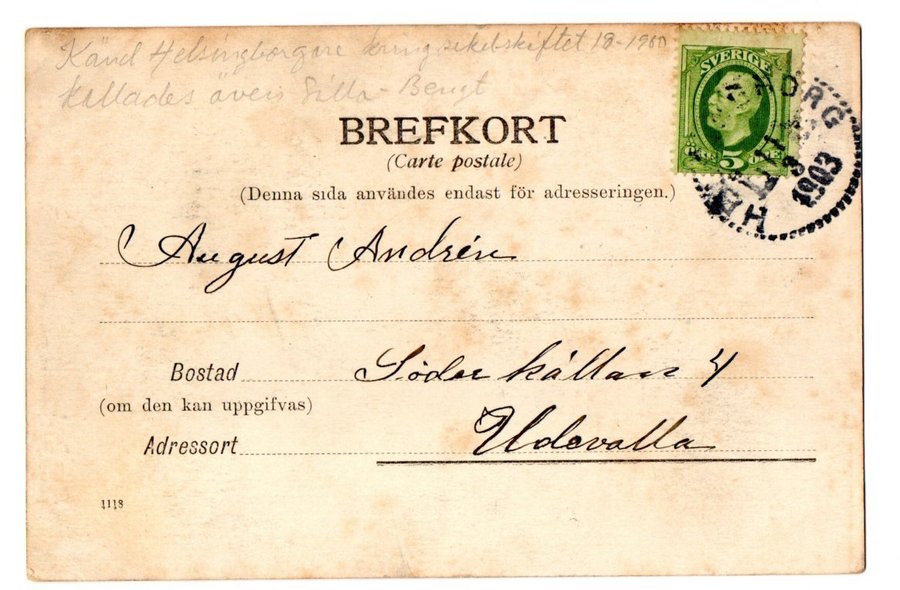 Känd Helsingborgare kring sekelskiftet 18-1900
kallades även Silla-Bengt
SVERIGE
5 ÖRE
BORG
1903
BREFKORT
(Carte postale)
(Denna sida användes endast för adresseringen.)
August Andrén
Bostad Söder källan 4
(om den kan uppgifvas)
Adressort Udevalla
1118